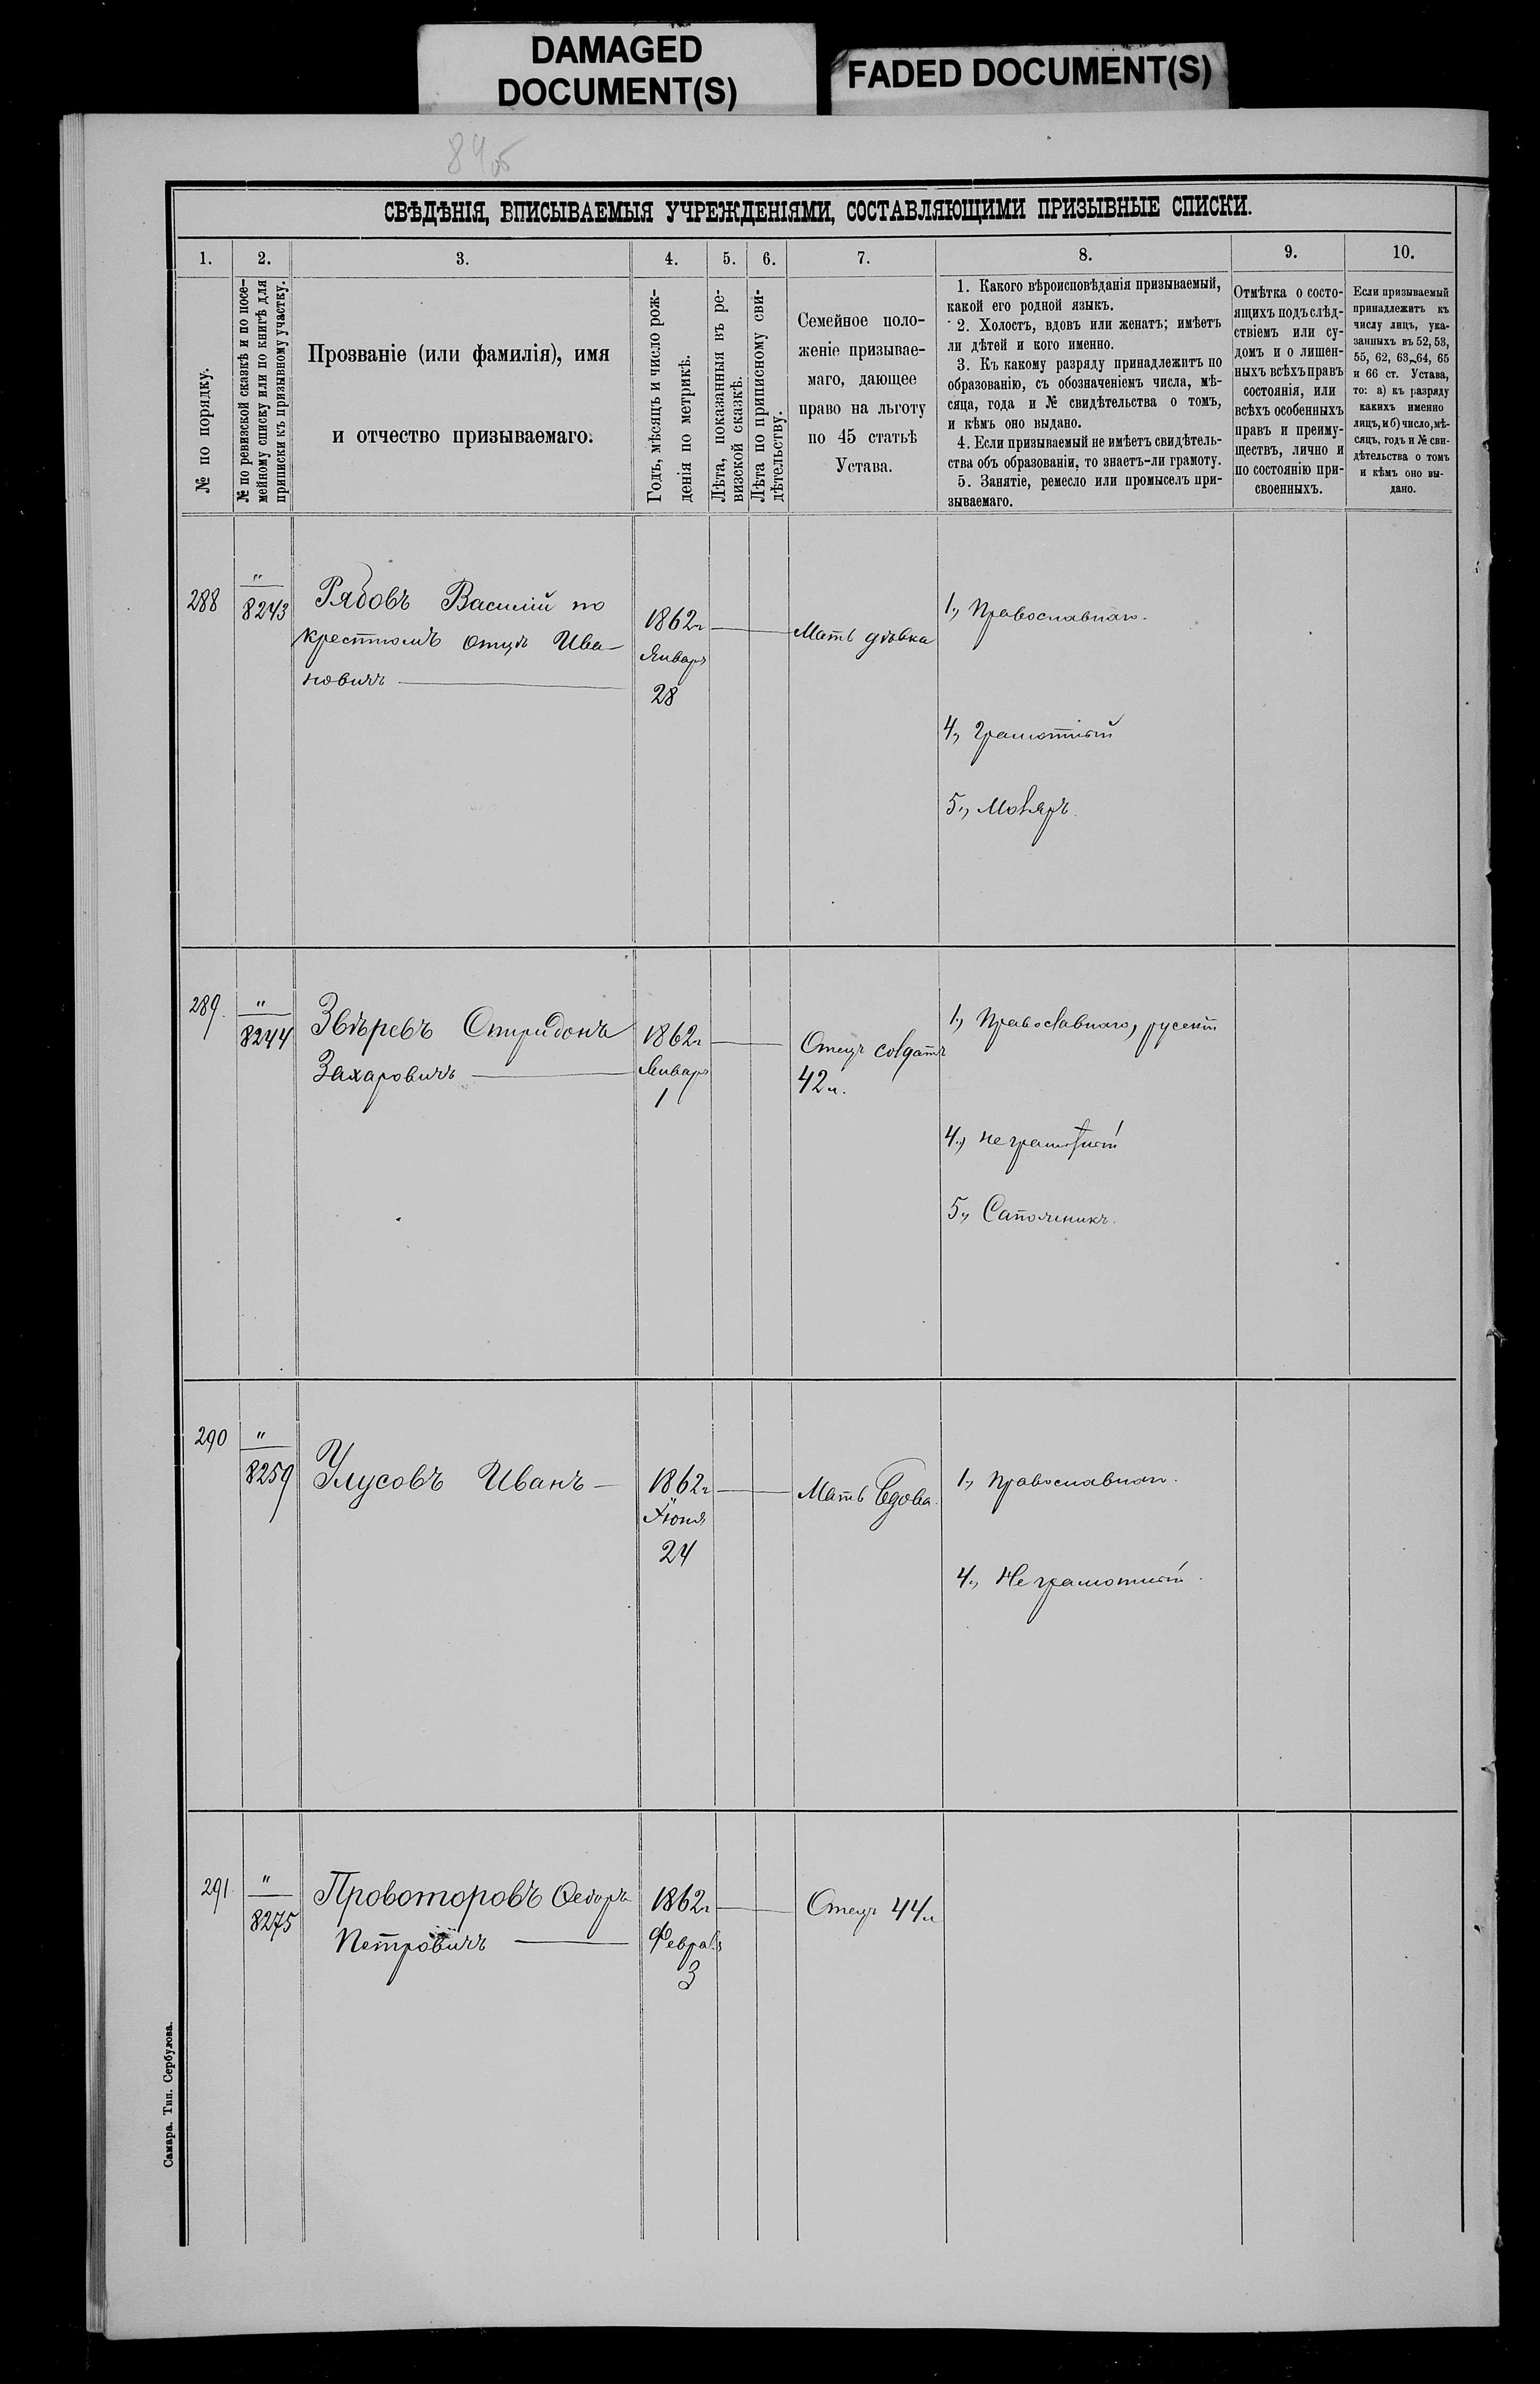 DAMAGED
DOCUMENT(S)
FADED DOCUMENT(S)
СВѢДѢНІЯ, ВПИСЫВАЕМЫЯ УЧРЕЖДЕНІЯМИ, СОСТАВЛЯЮЩИМИ ПРИЗЫВНЫЕ СПИСКИ.
1. 2. 3. 4. 5. 6. 7. 8. 9. 10.
№ по порядку.
№ по ревизской сказкѣ и по посе-
мейному списку или по книгѣ для
приписки къ призывному участку.
Прозваніе (или фамилія), имя
и отчество призываемаго.
Годъ, мѣсяцъ и число рож-
денія по метрикѣ.
Лѣта, показанныя въ ре-
визской сказкѣ.
Лѣта по приписному сви-
дѣтельству.
Семейное поло-
женіе призывае-
маго, дающее
право на льготу
по 45 статьѣ
Устава.
1. Какого вѣроисповѣданія призываемый,
какой его родной языкъ.
2. Холостъ, вдовъ или женатъ; имѣетъ
ли дѣтей и кого именно.
3. Къ какому разряду принадлежитъ по
образованію, съ обозначеніемъ числа, мѣ-
сяца, года и № свидѣтельства о томъ,
и кѣмъ оно выдано.
4. Если призываемый не имѣетъ свидѣтель-
ства объ образованіи, то знаетъ-ли грамоту.
5. Занятіе, ремесло или промыселъ при-
зываемаго.
Отмѣтка о состо-
ящихъ подъ слѣд-
ствіемъ или су-
домъ и о лишен-
ныхъ всѣхъ правъ
состоянія, или
всѣхъ особенныхъ
правъ и преиму-
ществъ, лично и
по состоянію при-
своенныхъ.
Если призываемый
принадлежитъ къ
числу лицъ, ука-
занныхъ въ 52, 53,
55, 62, 63, 64, 65
и 66 ст. Устава,
то: а) къ разряду
какихъ именно
лицъ, и б) число, мѣ-
сяцъ, годъ и № сви-
дѣтельства о томъ
и кѣмъ оно вы-
дано.
288
"
8243
Рябовъ Василій по
крестномъ отцѣ Ива-
новичъ
1862г
Январ
28
Мать дѣвка
1., Православнаго.
4., Грамотный
5., Маляръ.
289.
"
8244
Звѣревъ Спиридонъ
Захаровичъ
1862г
Январ
1
Отецъ солдатъ
42л.
1., Православнаго, русскій
4., Неграмотный
5., Сапожникъ.
290
"
8259
Улусовъ Иванъ
1862г
Іюня
24
Мать вдова.
1., Православнаго.
4., Неграмотный.
291
"
8275
Провоторовъ Ѳедоръ
Петровичъ
1862г
Феврал
3
Отецъ 44л
Самара. Тип. Сербулова.